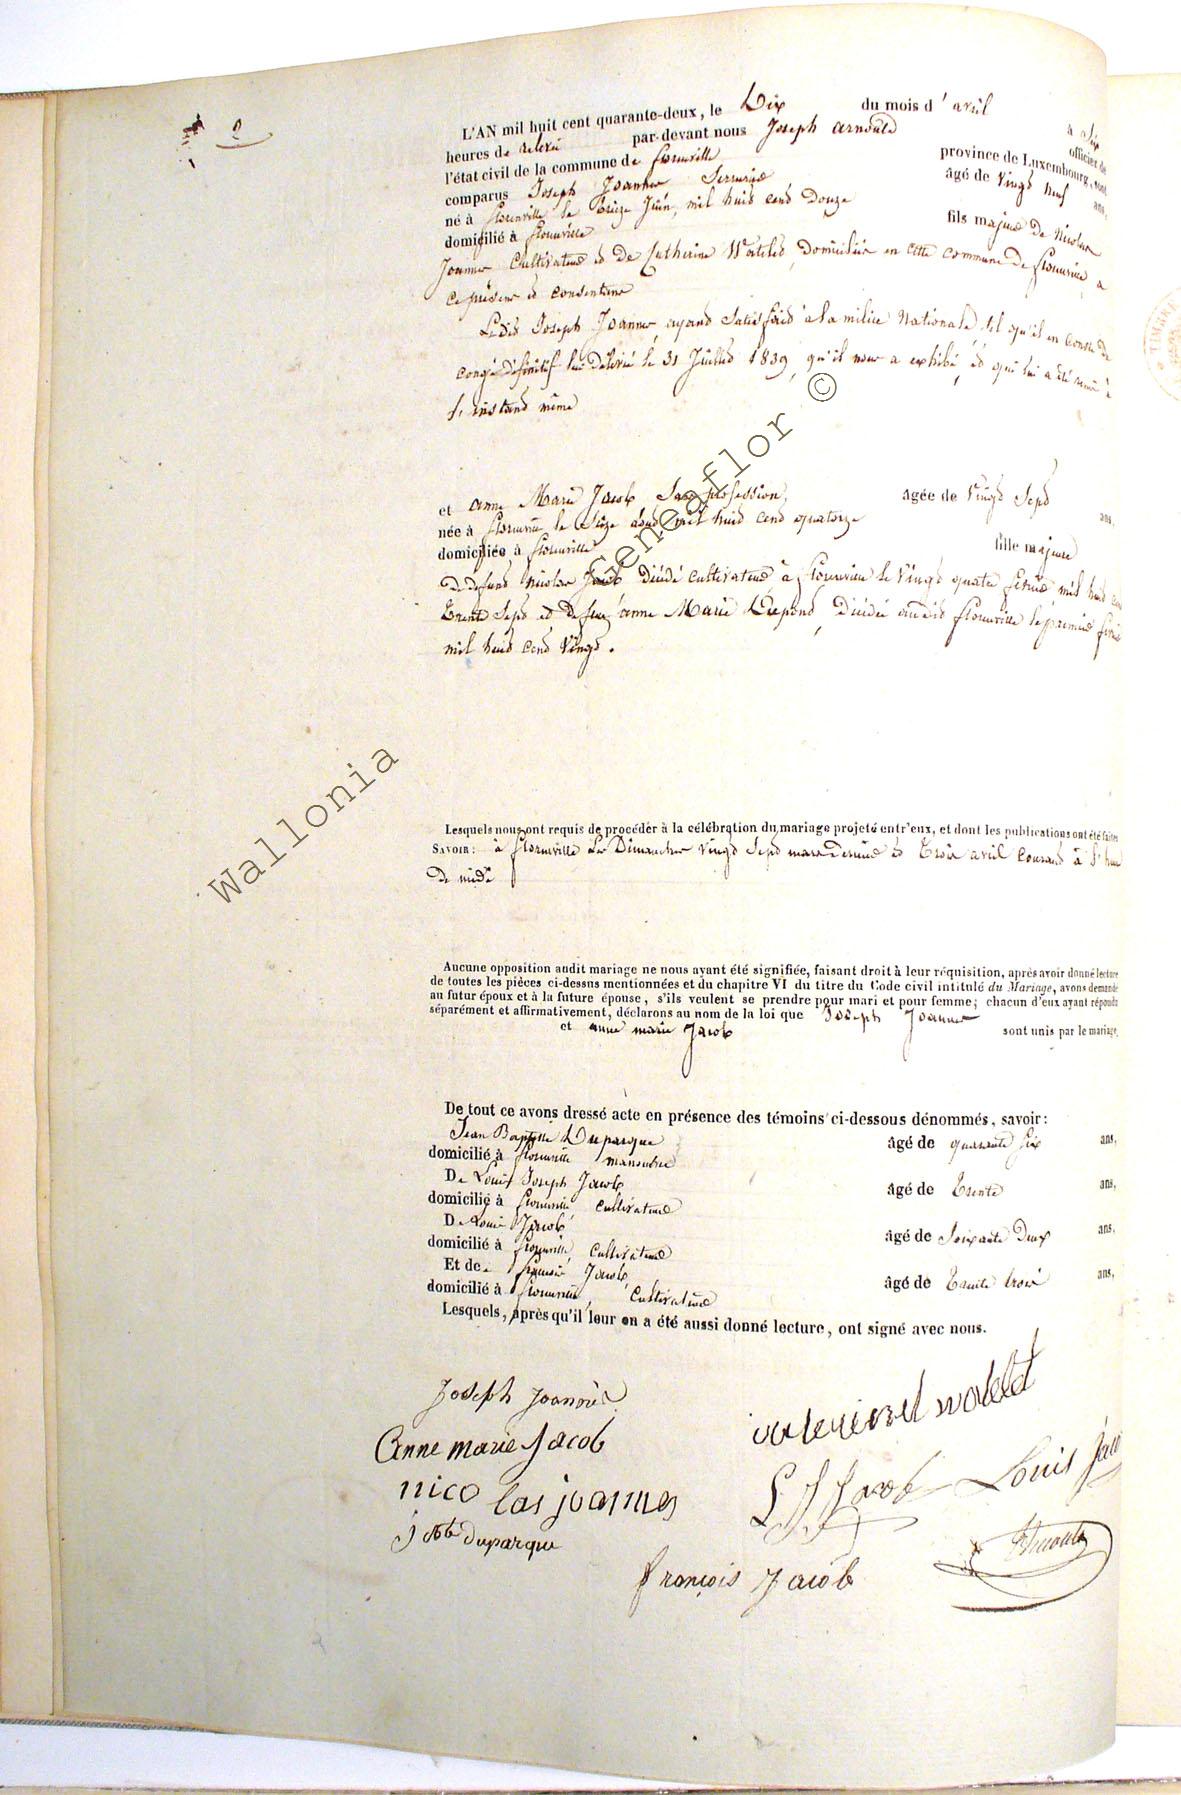 2
L'AN mil huit cent quarante-deux, le Dix du mois d'avril à Six
heures de relevé par-devant nous Joseph arnould officier de
l'état civil de la commune de florenville province de Luxembourg, sont
comparus Joseph Joannes Serrurier âgé de vingt neuf ans,
né à florenville le treize Juin, mil huit cent douze
domicilié à florenville fils majeur de Nicolas
Joannes Cultivateur et de Catherine Watelet, domiciliés en cette commune de florenville, a
ce présens et consentans
Ledit Joseph Joannes, ayant satisfait à la milice Nationale, tel qu'il en conste de
congé définitif lui délivré le 31 Juillet 1839, qu'il nous a exhibé, et qui lui a été remis à
l'instant même
et anne Marie Jacob Sans profession, agée de vingt Sept ans,
née à florenville le Seize août, mil huit cent quatorze
domiciliée à florenville fille majeure
De défunt Nicolas Jacob Décédé cultivateur à florenville le vingt quatre février mil huit cent
trente Sept et De feue anne Marie Dupont, Décédée audit florenville le premier février
mil huit cent vingt.
Lesquels nous ont requis de procéder à la célébration du mariage projeté entr'eux, et dont les publications ont été faites
SAVOIR: à florenville Les Dimanches vingt Sept mars Dernier et trois avril courant à l'heure
De midi
Aucune opposition audit mariage ne nous ayant été signifiée, faisant droit à leur réquisition, après avoir donné lecture
de toutes les pièces ci-dessus mentionnées et du chapitre VI du titre du Code civil intitulé du Mariage, avons demandé
au futur époux et à la future épouse, s'ils veulent se prendre pour mari et pour femme; chacun d'eux ayant répondu
séparément et affirmativement, déclarons au nom de la loi que Joseph Joannes
et anne marie Jacob sont unis par le mariage.
De tout ce avons dressé acte en présence des témoins ci-dessous dénommés, savoir:
Jean Baptiste Duparque âgé de quarante six ans,
domicilié à florenville manoeuvre
De Louis Joseph Jacob âgé de trente ans,
domicilié à florenville, cultivateur
De Louis Jacob âgé de Soixante Deux ans,
domicilié à florenville, cultivateur
Et de françois Jacob, âgé de trente trois ans,
domicilié à florenville, cultivateur
Lesquels, après qu'il leur en a été aussi donné lecture, ont signé avec nous.
Joseph Joannès
Anne marie Jacob
nicolas joannes
J Bte Duparque
watelet
L J Jacob
Louis Jacob
françois Jacob
Arnould
Wallonia Geneaflor ©
TIMBRE